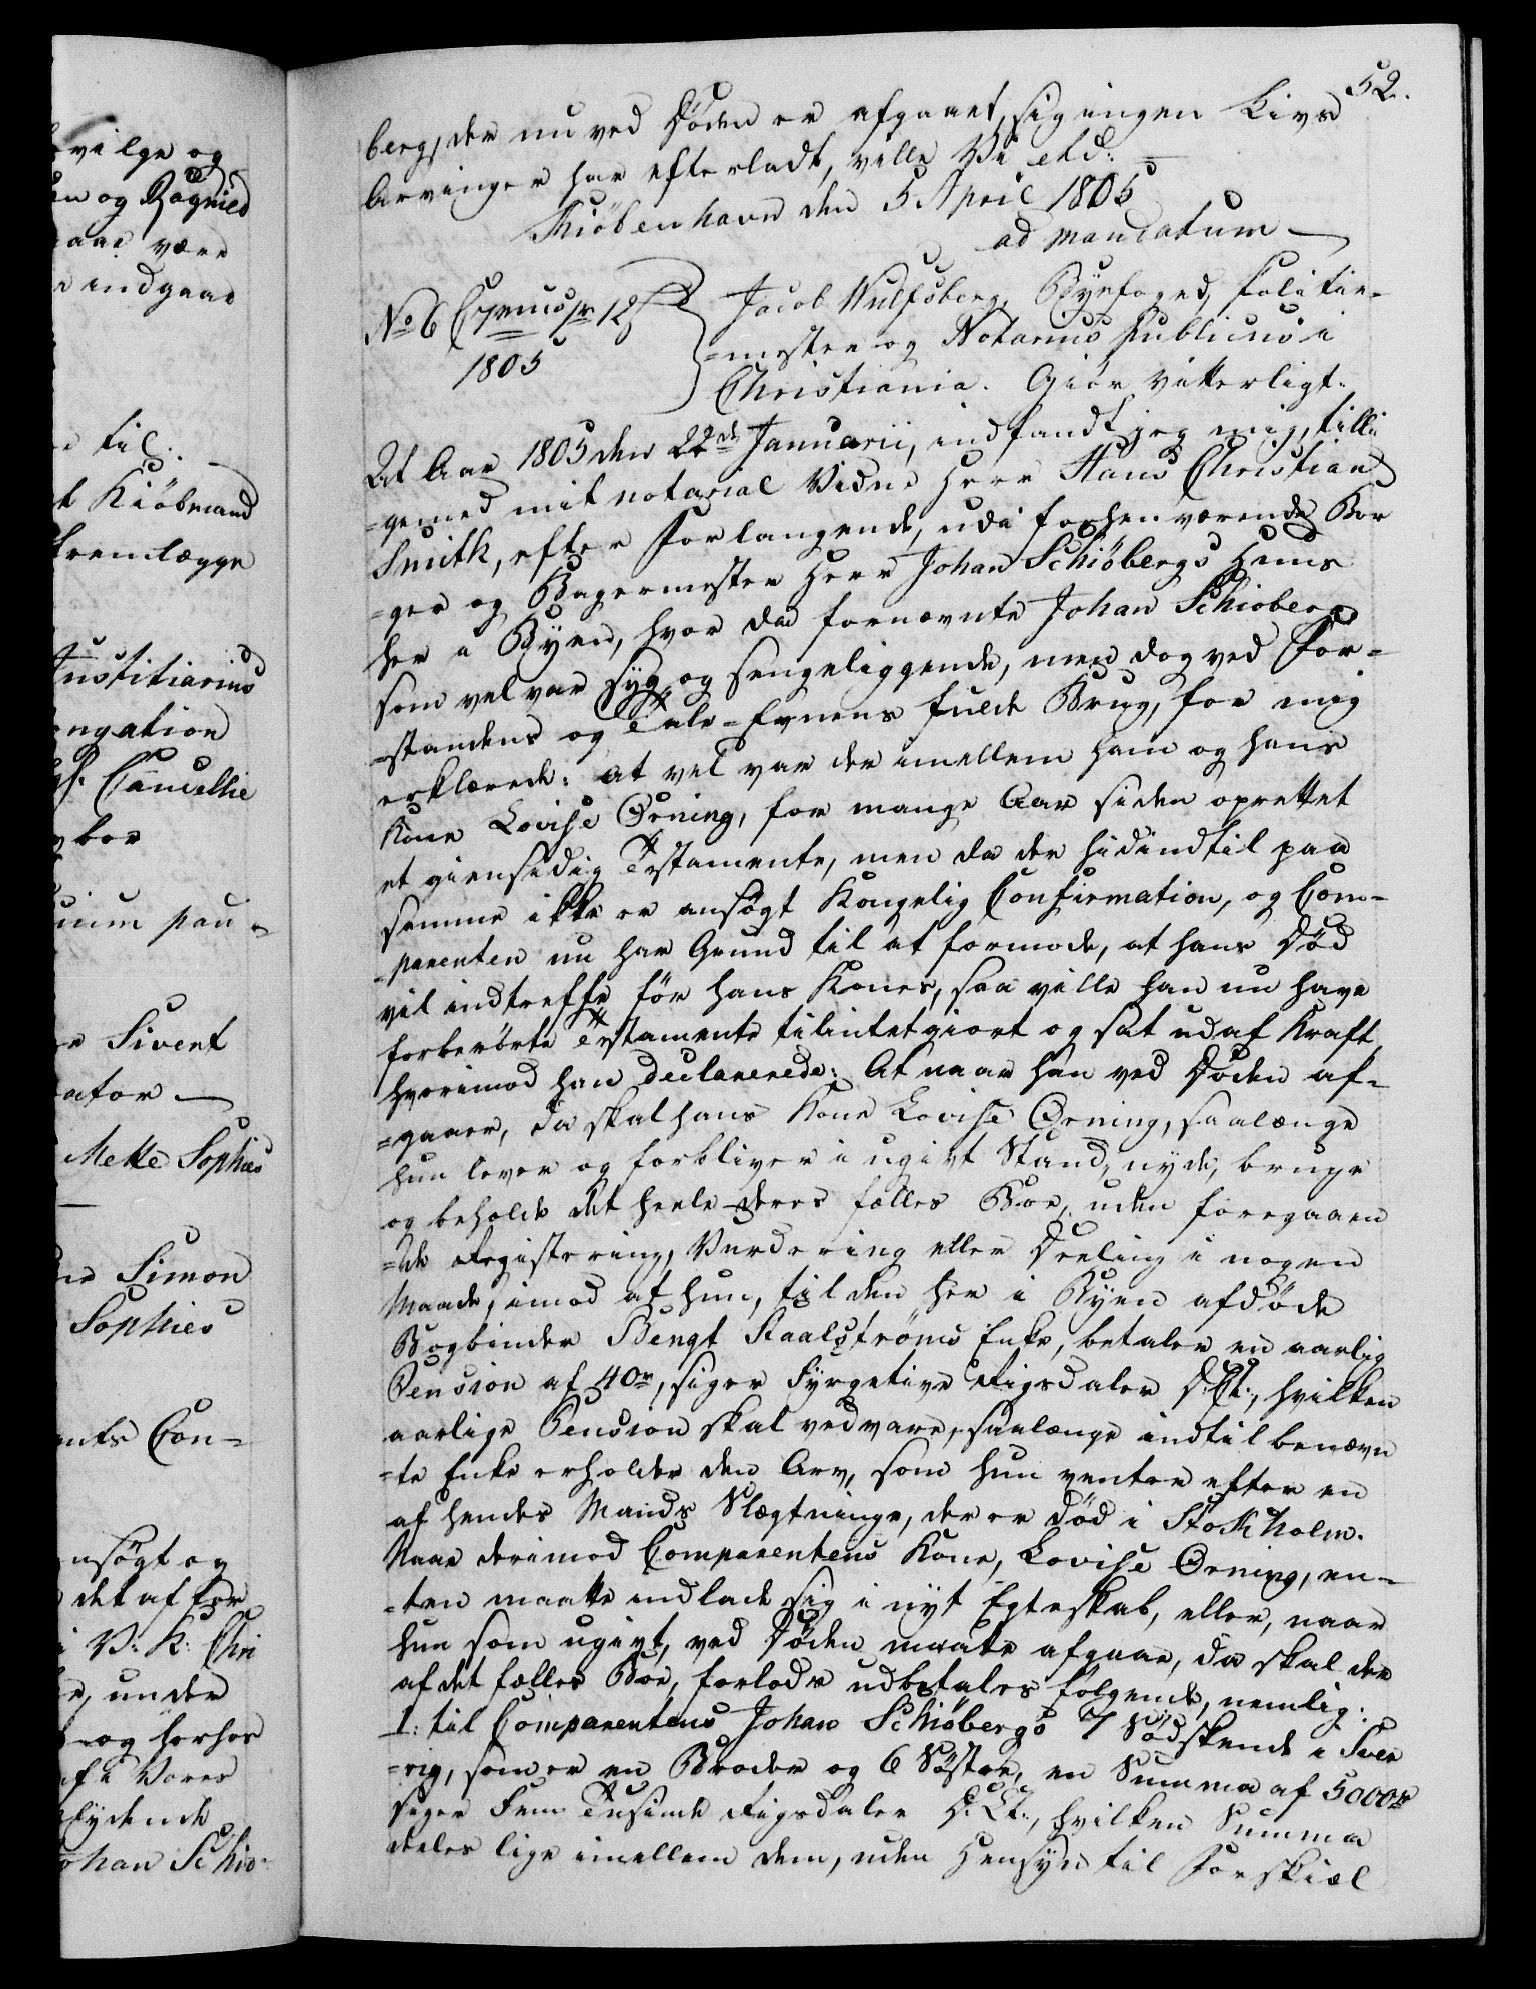 52.
berg, der nu ved Døden er afgaaet, sig ingen Livs
Arvinger har efterladt, ville Vi etc:
Kiøbenhavn den 5 April 1805
ad mandatum
No 6 1805
Jacob Wulfsberg, Byefoged, Politie-
=mester og Notarius Publicus i
Christiania. Giør vitterligt:
At Aar 1805 den 22de Januarii, indfandt jeg mig, tilli
=gemed mit notarial Vidne Herr Hans Christian
Smith, efter Forlangende, udi forhenværende Bor
=ger og Bagermester Herr Johan Schiöbergs Huus
her i Byen, hvor da fornævnte Johan Schioberg
som vel var syg og sengeliggende, men dog ved For-
=standens og Tale-Evnens fulde Brug, for mig
erklærede: at vel var der imellem ham og hans
Kone Lovise Örning, for mange Aar siden oprettet
et giensidig Testamente, men da der hidindtil paa
samme ikke er ansøgt Kongelig Confirmation, og Com-
=parenten nu har Grund til at formode, at hans Død
vil indtreffe för hans Kones, saa ville han nu have
forberørte Testamente tilintetgiort og sat ud af Kraft,
hvorimod han declarerede: At naar han ved Döden af-
=gaaer, da skal hans Kone Lovise Örning, saalænge
hun lever og forbliver i ugivt Stand, nyde, bruge
og beholde det heele deres fælles Boe, uden foregaaen
=de Registering, Vurdering eller Deeling i nogen
Maade, imod at hun, til den her i Byen afdöde
Bogbinder Bengt Staalströms Enke, betaler en aarlig
Pension af 40r, siger Fyrgetive Rigsdaler D: Ct:, hvilken
aarlige Pension skal vedvare, saalænge indtil benævn
=te Enke erholder den Arv, som hun venter efter en
af hendes Mands Slægtninge, der er död i Stokholm.
Naar derimod Comparentens Kone, Lovise Örning, en-
=ten maatte indlade sig i nyt Egteskab, eller, naar
hun som ugivt, ved Döden maatte afgaae, da skal der
af det fælles Boe, forlods udbetales fölgende, nemlig:
1: til Comparentens Johan Schiöbergs 7 Södskende i Sver
=rig, som er en Broder og 6 Söstre, en Summa af 5000r
siger Fem Tusinde Rigsdaler D: Ct:, hvilken Summa
deeles lige imellem dem, uden Hensyn til Forskiæl
vilge og
en og Ragnild
være
indgaae
til
Kiöbmand
fremlægge
Justitiarius
Cancellie
Sivert
ator
Mette Sophies
Simon
Sophies
Con-
nsøgt og
det af for
V: K: Chri
under
og horhos
i Vores
lydende
ohan Schio-